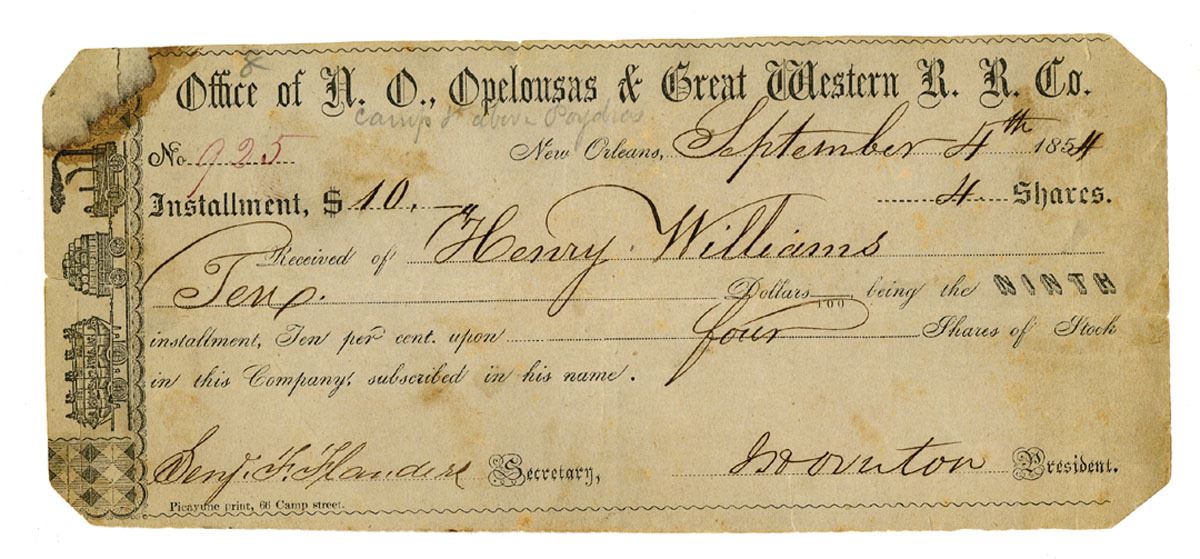 Office of N. O., Opelousas & Great Western R. R. Co.
Camp St above Poydras
No. 925 New Orleans, September 4th 1854
Installment, $ 10.— 4 Shares.
Received of Henry Williams
Ten Dollars /100, being the NINTH
installment, Ten per cent. upon four Shares of Stock
in this Company, subscribed in his name.
Benj. F. Flanders Secretary, President.
Picayune print, 66 Camp street.